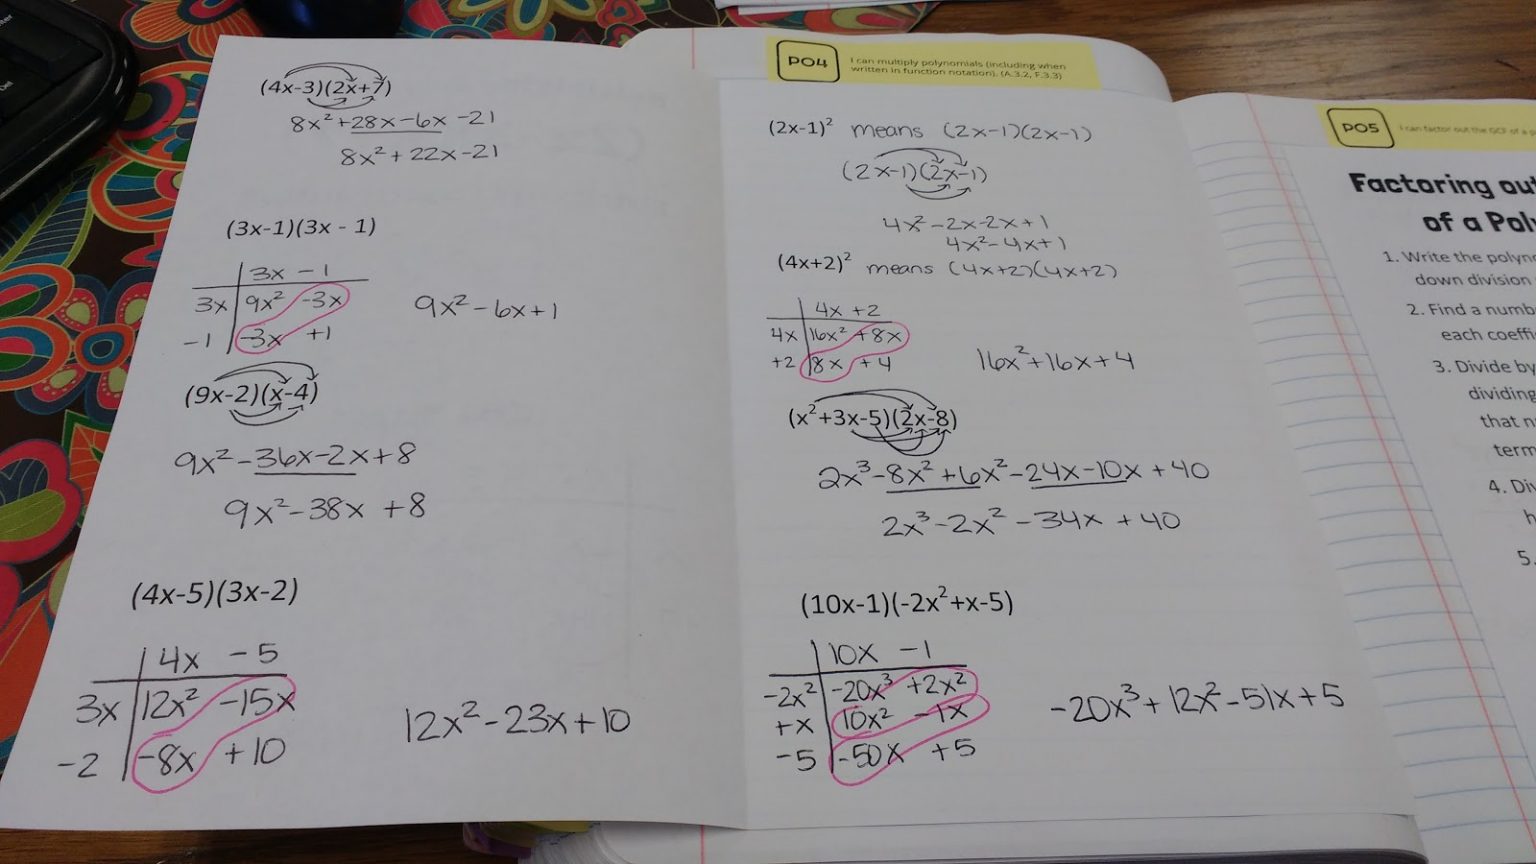 (4x-3)(2x+7)
8x²+28x-6x-21
8x²+22x-21
(3x-1)(3x - 1)
3x -1
3x 9x² -3x
-1 -3x +1
9x²-6x+1
(9x-2)(x-4)
9x²-36x-2x+8
9x²-38x+8
(4x-5)(3x-2)
4x -5
3x 12x² -15x
-2 -8x +10
12x²-23x+10
PO4
I can multiply polynomials (including when
written in function notation). (A.3.2, F.3.3)
(2x-1)² means (2x-1)(2x-1)
(2x-1)(2x-1)
4x²-2x-2x+1
4x²-4x+1
(4x+2)² means (4x+2)(4x+2)
4x +2
4x 16x² +8x
+2 8x +4
16x²+16x+4
(x²+3x-5)(2x-8)
2x³-8x²+6x²-24x-10x+40
2x³-2x²-34x+40
(10x-1)(-2x²+x-5)
10x -1
-2x² -20x³ +2x²
+x 10x² -1x
-5 -50x +5
-20x³+12x²-51x+5
PO5
I can factor out the GCF of a
Factoring out
of a Pol
1. Write the polyno
down division
2. Find a numb
each coeffi
3. Divide by
dividing
that n
term
4. Div
5.
Del